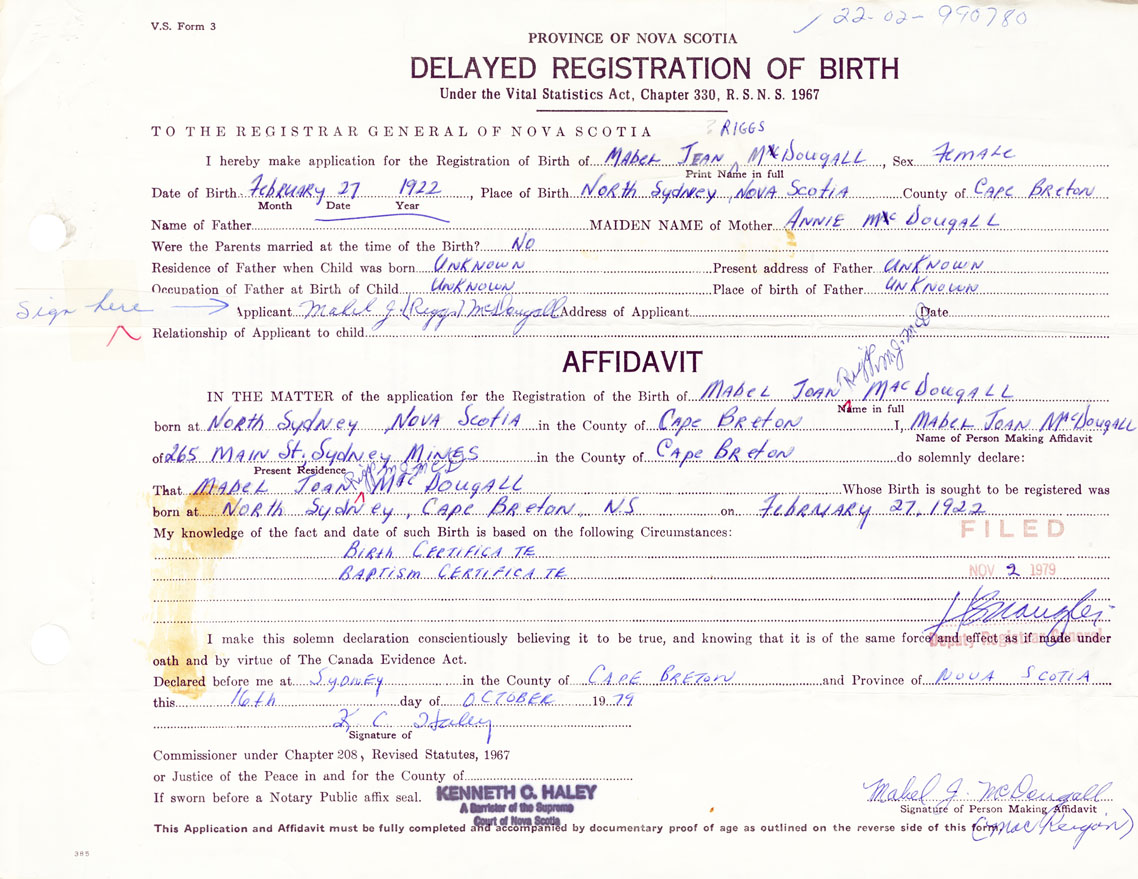 V.S. Form 3
22-02-990780
PROVINCE OF NOVA SCOTIA
DELAYED REGISTRATION OF BIRTH
Under the Vital Statistics Act, Chapter 330, R. S. N. S. 1967
TO THE REGISTRAR GENERAL OF NOVA SCOTIA
RIGGS
I hereby make application for the Registration of Birth of Mabel Jean McDougall, Sex Female
Print Name in full
Date of Birth February 27 1922, Place of Birth North Sydney, Nova Scotia County of Cape Breton
Month Date Year
Name of Father MAIDEN NAME of Mother Annie Mc Dougall
Were the Parents married at the time of the Birth? No
Residence of Father when Child was born Unknown Present address of Father Unknown
Occupation of Father at Birth of Child Unknown Place of birth of Father Unknown
Sign here → Applicant Mabel J. (Riggs) McDougall Address of Applicant Date
Relationship of Applicant to child
AFFIDAVIT
Riggs M.J.McD
IN THE MATTER of the application for the Registration of the Birth of Mabel Joan MacDougall
Name in full
born at North Sydney, Nova Scotia in the County of Cape Breton I, Mabel Joan MacDougall
Name of Person Making Affidavit
of 265 Main St. Sydney Mines in the County of Cape Breton do solemnly declare:
Present Residence
Riggs M.J.McD
That Mabel Joan MacDougall Whose Birth is sought to be registered was
born at North Sydney, Cape Breton, NS on February 27, 1922
My knowledge of the fact and date of such Birth is based on the following Circumstances:
Birth Certificate
Baptism Certificate
FILED
NOV 2 1979
Deputy Registrar General
I make this solemn declaration conscientiously believing it to be true, and knowing that it is of the same force and effect as if made under
oath and by virtue of The Canada Evidence Act.
Declared before me at Sydney in the County of Cape Breton and Province of Nova Scotia
this 16th day of October 1979
K C Haley
Signature of
Commissioner under Chapter 208, Revised Statutes, 1967
or Justice of the Peace in and for the County of
If sworn before a Notary Public affix seal.
KENNETH C. HALEY
A Barrister of the Supreme
Court of Nova Scotia
Mabel J. McDougall
Signature of Person Making Affidavit
This Application and Affidavit must be fully completed and accompanied by documentary proof of age as outlined on the reverse side of this form.
(MacKeigan)
385